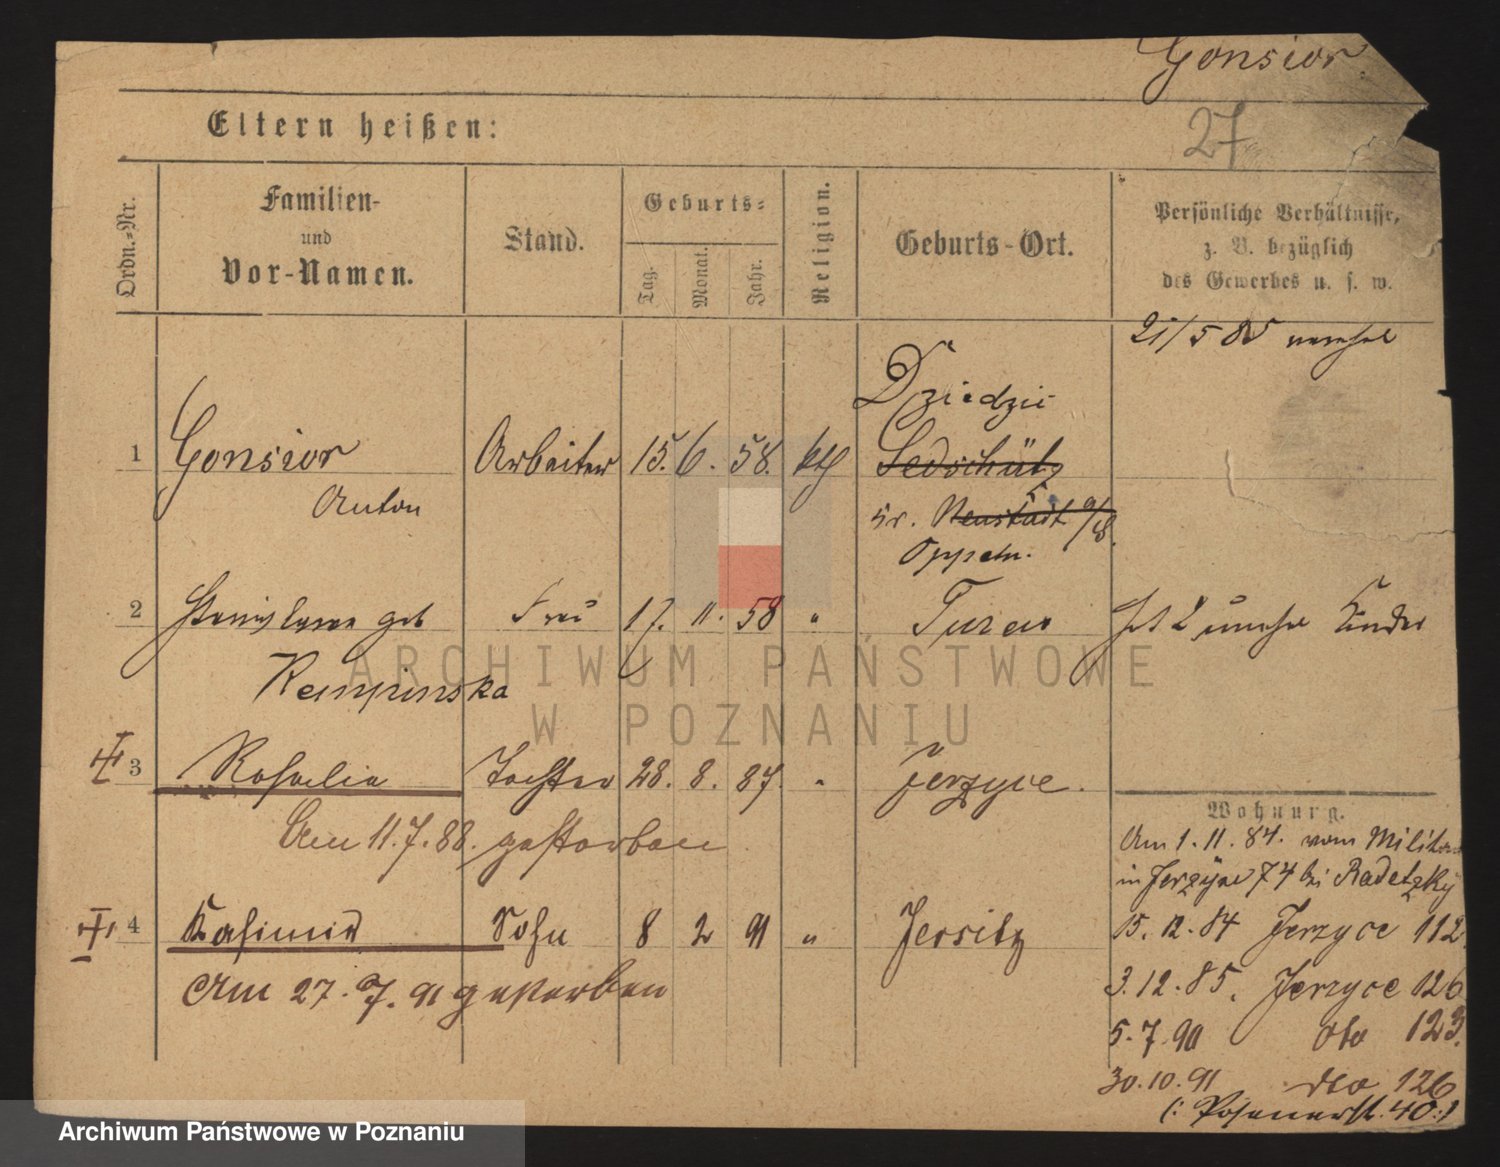 Gonsior
27
Eltern heißen:
Ordn.-Nr.
Familien-
und
Vor-Namen.
Stand.
Geburts-
Tag.
Monat.
Jahr.
Religion.
Geburts-Ort.
Persönliche Verhältnisse,
z. B. bezüglich
des Gewerbes u. s. w.
21/5 85
1 Gonsior Arbeiter 15. 6. 58. kth Dziedzic
Anton
Sedschütz
Kr. Neustadt
Oppeln.
2 Stanislawa geb Frau 17. 11. 58 " Turew
Kempinska
hat 2 Kinder
3 Rosalia Tochter 28. 8. 87. " Jerzyce.
Am 11.7.88. gestorben
4 Kasimir Sohn 8 2 91 " Jersitz
Am 27. 7. 91 gestorben
Wohnung.
Am 1. 11. 84. vom Militär
in Jerzyce 74 bei Radetzky
15. 12. 84 Jerzyce 112
3. 12. 85. Jerzyce 126
5. 7. 90 dto 123.
30. 10. 91 dto 126
(: Posenerst. 40 :)
ARCHIWUM PAŃSTWOWE
W POZNANIU
Archiwum Państwowe w Poznaniu